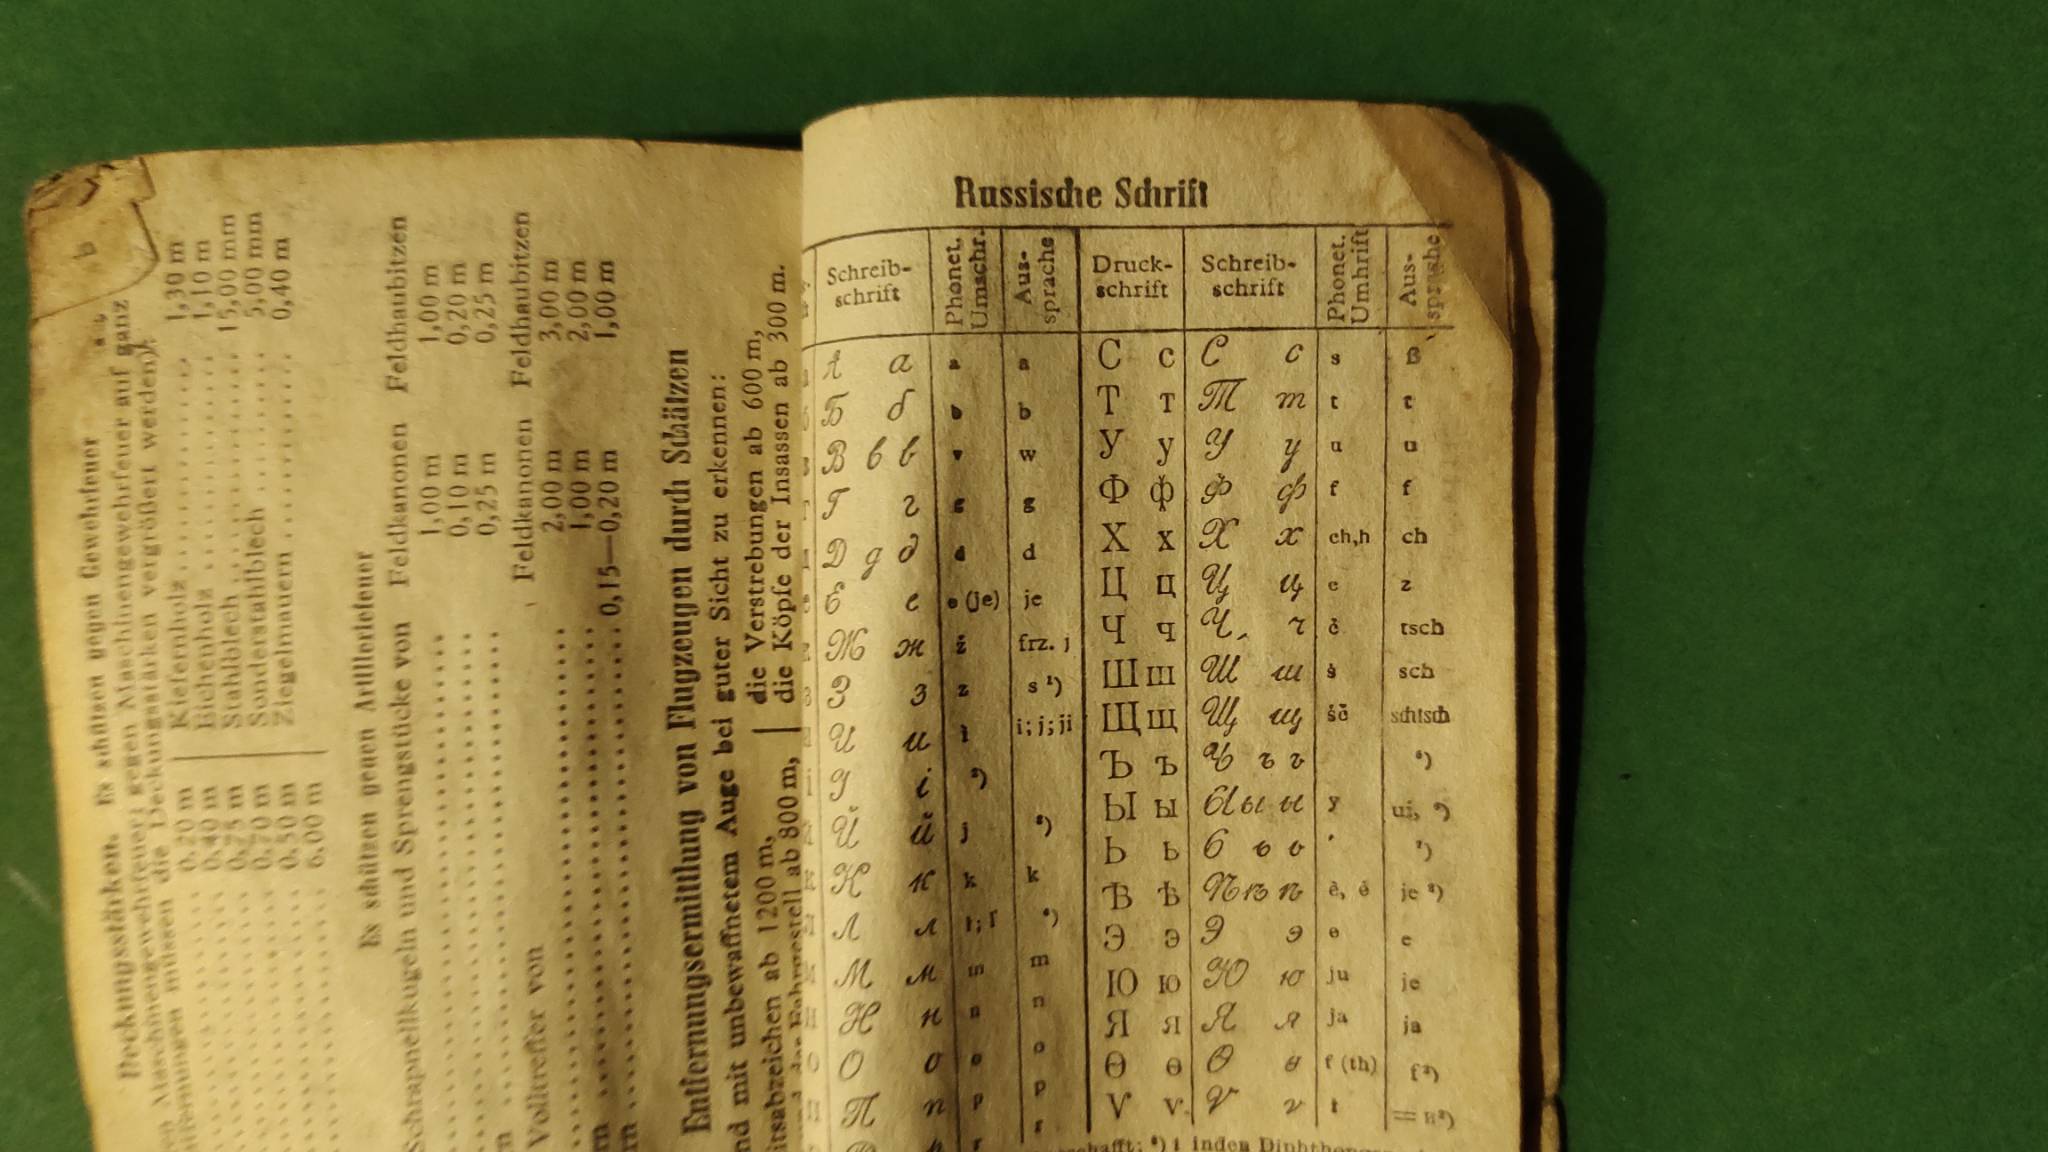 Deckungsstärken. Es schützen gegen Gewehrfeuer
Maschinengewehrfeuer; gegen Maschinengewehrfeuer auf ganz
müssen die Deckungsstärken vergrößert werden):
0,20 m Kiefernholz 1,30 m
0,40 m Eichenholz 1,10 m
0,75 m Stahlblech 15,00 mm
0,70 m Sonderstahlblech 5,00 mm
0,50 m Ziegelmauern 0,40 m
6,00 m
Es schützen gegen Artilleriefeuer
Schrapnellkugeln und Sprengstücke von Feldkanonen Feldhaubitzen
1,00 m 1,00 m
0,10 m 0,20 m
0,25 m 0,25 m
Volltreffer von Feldkanonen Feldhaubitzen
2,00 m 3,00 m
1,00 m 2,00 m
0,15—0,20 m 1,00 m
Entfernungsermittlung von Flugzeugen durch Schätzen
mit unbewaffnetem Auge bei guter Sicht zu erkennen:
ab 1200 m, die Verstrebungen ab 600 m,
ab 800 m, die Köpfe der Insassen ab 300 m.
Russische Schrift
Schreib-schrift Phonet. Umschr. Aus-sprache Druck-schrift Schreib-schrift Phonet. Umhrift Aus-sprache
А а a a С с С с s ß
Б б b b Т т Т т t t
В в в v w У у У у u u
Г г g g Ф ф Ф ф f f
Д д д d d Х х Х х ch,h ch
Е е e (je) je Ц ц Ц ц c z
Ж ж ž frz. j Ч ч Ч ч č tsch
З з z s ¹) Ш ш Ш ш š sch
И и i i; j; ji Щ щ Щ щ šč schtsch
І і ²) Ъ ъ Ъ ъ ъ
Й й j Ы ы Ы ы ы y ui,
К к k k Ь ь Ь ь ь ' ⁷)
Л л l; l' Ѣ ѣ Ѣ ѣ ѣ ě, é je
М м m m Э э Э э e e
Н н n n Ю ю Ю ю ju je
О о o o Я я Я я ja ja
П п p p Ѳ ѳ Ѳ ѳ f (th) f
r r Ѵ ѵ Ѵ ѵ i =